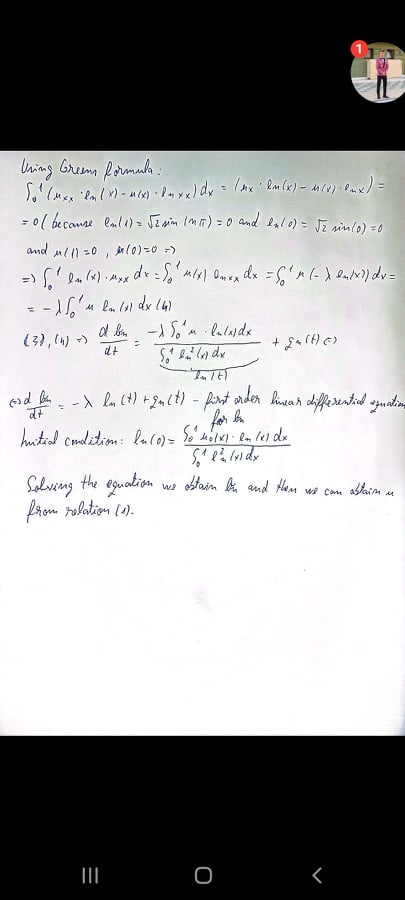 1
Using Greens formula:
∫₀¹(uxx · en(x) - u(x) · enxx) dx = (ux · en(x) - u(x) · enx) =
= 0 ( because en(1) = √2 sin(nπ) = 0 and en(0) = √2 sin(0) = 0
and u(1) = 0, u(0) = 0 =>
=> ∫₀¹ en(x) · uxx dx = ∫₀¹ u(x) enxx dx = ∫₀¹ u(-λ en(x)) dx =
= -λ ∫₀¹ u en(x) dx (4)
(3), (4) => d bn/dt = -λ ∫₀¹ u · en(x) dx / ∫₀¹ en²(x) dx + qn(t) <=>
bn(t)
<=> d bn/dt = -λ bn(t) + qn(t) - first order linear differential equation
for bn
Initial condition: bn(0) = ∫₀¹ u₀(x) · en(x) dx / ∫₀¹ en²(x) dx
Solving the equation we obtain bn and then we can obtain u
from relation (1).